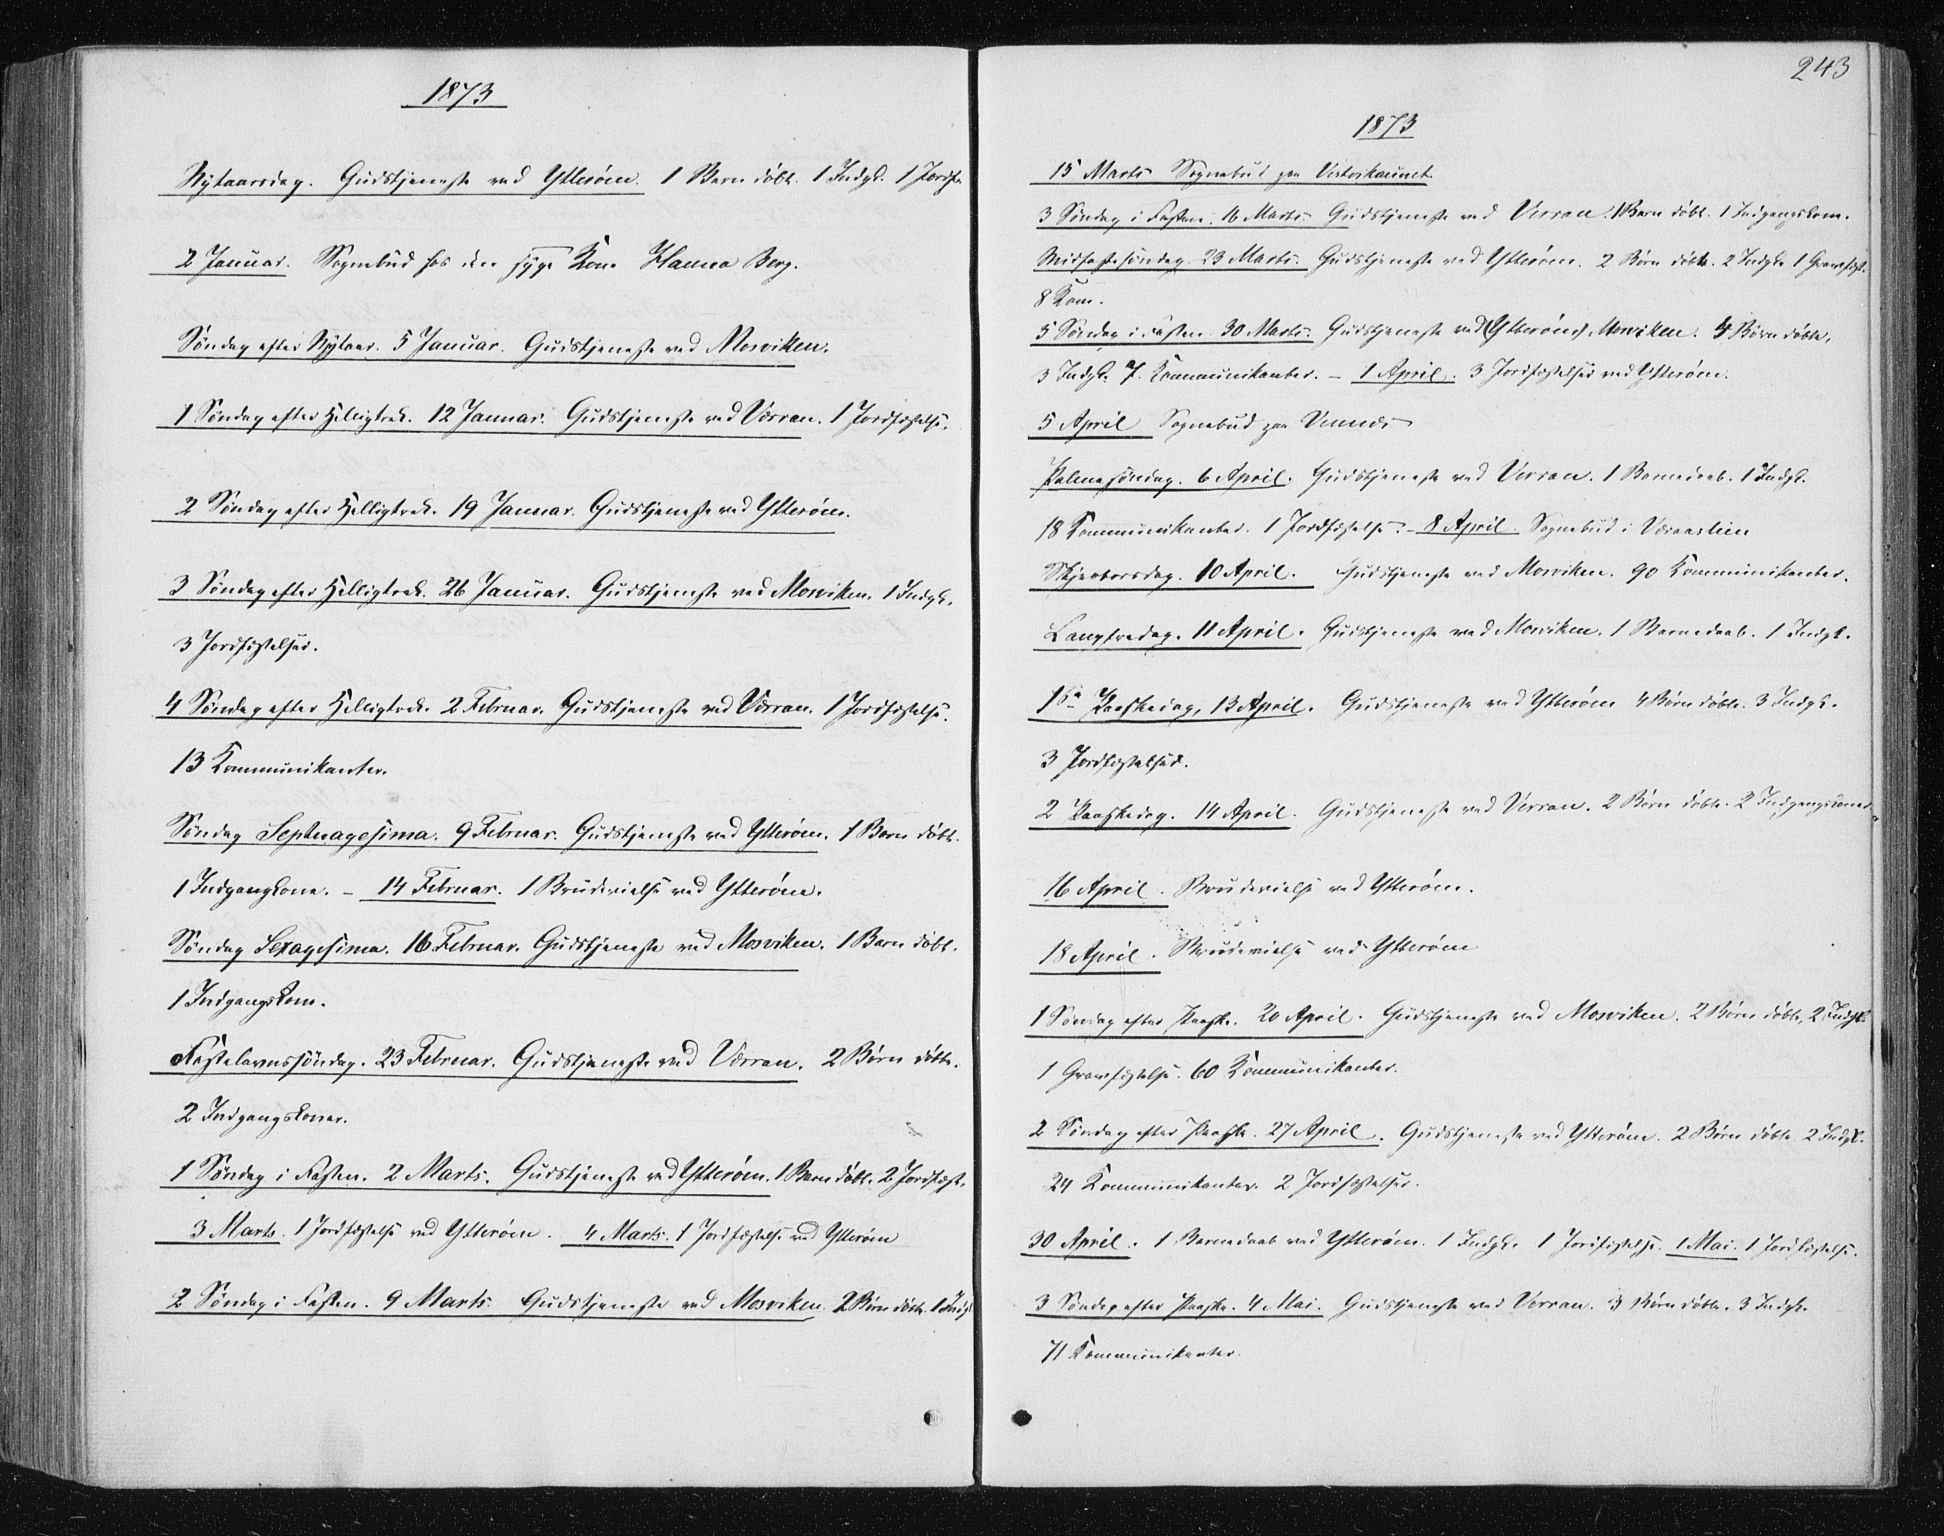 1873
Nytaarsdag. Gudstjeneste ved Ytterøen. 1 Barn døbt. 1 Indgk. 1 Jordf.
2 Januar. Sognebud hos den syge Kone Hanna Berg.
Søndag efter Nytaar. 5 Januar. Gudstjeneste ved Mosviken.
1 Søndag efter Helligtrek. 12 Januar. Gudstjeneste ved Værran. 1 Jordfæstelse.
2 Søndag efter Helligtrek. 19 Januar. Gudstjeneste ved Ytterøen.
3 Søndag efter Helligtrek. 26 Januar. Gudstjeneste ved Mosviken. 1 Indgk.
3 Jordfæstelser.
4 Søndag efter Helligtrek. 2 Februar. Gudstjeneste ved Værran. 1 Jordfæstelse.
13 Kommunikanter.
Søndag Septuagesima. 9 Februar. Gudstjeneste ved Ytterøen. 1 Barn døbt.
1 Indgangskone. – 14 Februar. 1 Brudevielse ved Ytterøen.
Søndag Sexagesima. 16 Februar. Gudstjeneste ved Mosviken. 1 Barn døbt.
1 Indgangskone.
Fastelavnssøndag. 23 Februar. Gudstjeneste ved Værran. 2 Børn døbte.
2 Indgangskoner.
1 Søndag i Fasten. 2 Marts. Gudstjeneste ved Ytterøen. 1 Barn døbt. 2 Jordfæst.
3 Marts. 1 Jordfæstelse ved Ytterøen. 4 Marts. 1 Jordfæstelse ved Ytterøen
2 Søndag i Fasten. 9 Marts. Gudstjeneste ved Mosviken. 2 Børn døbte. 1 Indgk
243
1873
15 Marts Sognebud paa
3 Søndag i Fasten. 16 Marts. Gudstjeneste ved Verran. 1 Barn døbt. 1 Indgangskone.
Midfastesøndag 23 Marts. Gudstjeneste ved Ytterøen. 2 Børn døbte. 2 Indgk. 1 Gravfæst.
8 Kom.
5 Søndag i Fasten. 30 Marts. Gudstjeneste ved (Ytterøen) Mosviken. 4 Børn døbte.
3 Indgk. 7. Kommunikanter. – 1 April. 3 Jordfæstelser ved Ytterøen.
5 April Sognebud paa
Palmesøndag. 6 April. Gudstjeneste ved Verran. 1 Barnedaab. 1 Indgk.
18 Kommunikanter. 1 Jordfæstelse. – 8 April. Sognebud i
Skjertorsdag. 10 April. Gudstjeneste ved Mosviken. 90 Kommunikanter.
Langfredag. 11 April. Gudstjeneste ved Mosviken. 1 Barnedaab. 1 Indgk.
1ste Paaskedag, 13 April. Gudstjeneste ved Ytterøen 4 Børn døbte. 3 Indgk.
3 Jordfæstelser.
2 Paaskedag. 14 April. Gudstjeneste ved Verran. 2 Børn døbte. 2 Indgangskoner.
16 April. Brudevielse ved Ytterøen.
18 April. Brudevielse ved Ytterøen
1 Søndag efter Paaske. 20 April. Gudstjeneste ved Mosviken. 2 Børn døbte, 2 Indgk.
1 Gravfæstelse. 60 Kommunikanter.
2 Søndag efter Paaske. 27 April. Gudstjeneste ved Ytterøen. 2 Børn døbte. 2 Indgk.
24 Kommunikanter. 2 Jordfæstelser.
30 April. 1 Barnedaab ved Ytterøen. 1 Indgk. 1 Jordfæstelse. 1 Mai. 1 Jordfæstelse.
3 Søndag efter Paaske. 4 Mai. Gudstjeneste ved Verran. 3 Børn døbte. 3 Indgk.
71 Kommunikanter.